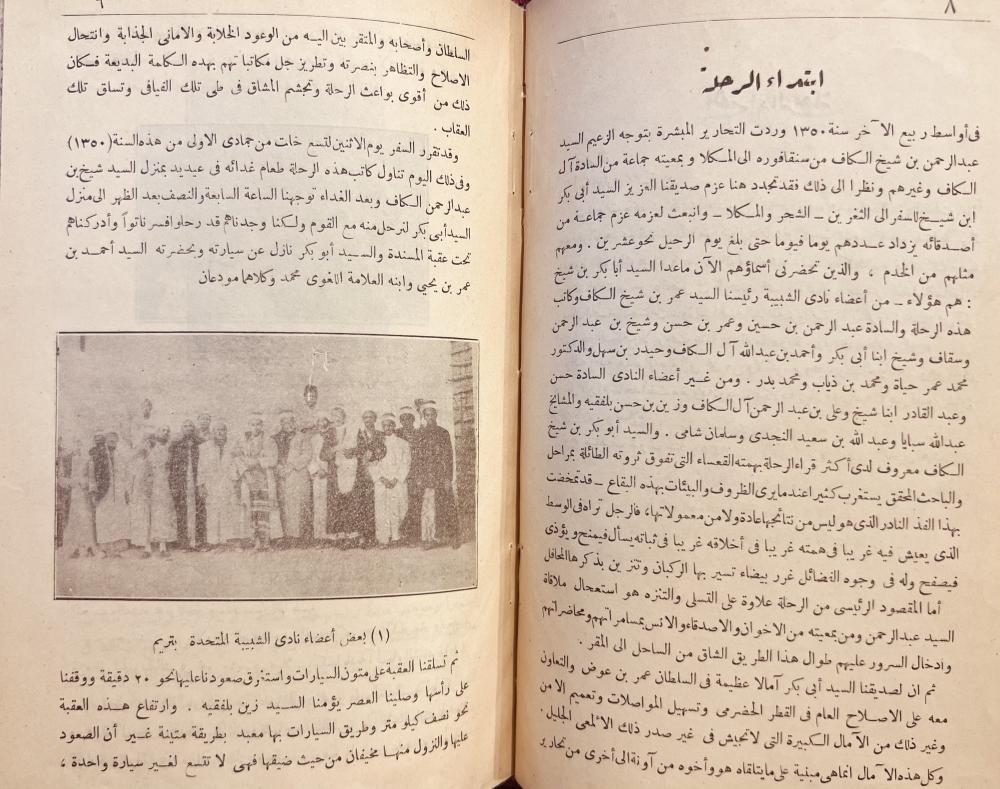 ٨
ابتداء الرحلة
فى أواسط ربيع الآخر سنة ١٣٥٠ وردت التحارير المبشرة بتوجه الزعيم السيد
عبدالرحمن بن شيخ الكاف من سنقافوره الى المكلا وبمعيته جماعة من السادة آل
الكاف وغيرهم ونظرا الى ذلك فقد تجدد هنا عزم صديقنا العزيز السيد أبى بكر
ابن شيخ للسفر الى الثغرين ــ الشحر والمكلا ــ وانبعث لعزمه عزم جماعة من
أصدقائه يزداد عددهم يوما فيوما حتى بلغ يوم الرحيل نحو عشرين . ومعهم
مثلهم من الخدم ، والذين تحضرنى أسماؤهم الآن ماعدا السيد أبا بكر بن شيخ
: هم هؤلاء ــ من أعضاء نادى الشبيبة رئيسنا السيد عمر بن شيخ الكاف وكاتب
هذه الرحلة والسادة عبد الرحمن بن حسين وعمر بن حسن وشيخ بن عبد الرحمن
وسقاف وشيخ ابنا أبى بكر وأحمد بن عبد الله آل الكاف وحيدر بن سهل والدكتور
محمد عمر حياة ومحمد بن ذياب ومحمد بدر . ومن غير أعضاء النادى السادة حسن
وعبد القادر ابنا شيخ وعلى بن عبد الرحمن آل الكاف وزين بن حسن بلفقيه والمشايخ
عبدالله سبايا وعبد الله بن سعيد النجدى وسلمان شامى . والسيد أبو بكر بن شيخ
الكاف معروف لدى أكثر قراء الرحلة بهمته القعساء التى تفوق ثروته الطائلة بمراحل
والباحث المحقق يستغرب كثيرا عندما يرى الظروف والبيئات بهذه البقاع ــ قد تمخضت
بهذا الفذ النادر الذى هو ليس من نتائجها عادة ولا من معمولاتها، فالرجل تراه فى الوسط
الذى يعيش فيه غريبا فى همته غريبا فى أخلاقه غريبا فى ثباته يسأل فيمنح ويؤذى
فيصفح وله فى وجوه الفضائل غرر بيضاء تسير بها الركبان وتتزين بذكرها المحافل
أما المقصود الرئيسى من الرحلة علاوة على التسلى والتنزه هو استعجال ملاقاة
السيد عبدالرحمن ومن بمعيته من الاخوان والاصدقاء والانس بمسامراتهم ومحاضراتهم
وادخال السرور عليهم طوال هذا الطريق الشاق من الساحل الى المقر .
ثم ان لصديقنا السيد أبى بكر آمالا عظيمة فى السلطان عمر بن عوض والتعاون
معه على الاصلاح العام فى القطر الحضرمى وتسهيل المواصلات وتعميم الامن
وغير ذلك من الآمال الكبيرة التى لاتجيش فى غير صدر ذلك الالمعى الجليل .
وكل هذه الآمال انما هى مبنية على مايتلقاه هو وأخوه من آونة الى أخرى من تحارير
السلطان وأصحابه والمتقربين اليه من الوعود الخلابة والامانى الجذابة وانتحال
الاصلاح والتظاهر بنصرته وتطريز جل مكاتباتهم بهده الكلمة البديعة فكان
ذلك من أقوى بواعث الرحلة وتجشم المشاق فى طى تلك الفيافى وتساق تلك
العقاب .
وقد تقرر السفر يوم الاثنين لتسع خلت من جمادى الاولى من هذه السنة (١٣٥٠)
وفى ذلك اليوم تناول كاتب هذه الرحلة طعام غدائه فى عيديد بمنزل السيد شيخ بن
عبدالرحمن الكاف وبعد الغداء توجهنا الساعة السابعة والنصف بعد الظهر الى منزل
السيد أبى بكر لنرحل منه مع القوم ولكنا وجدناهم قد رحلوا فسرنا توآ وأدركناهم
تحت عقبة المسندة والسيد أبو بكر نازل عن سيارته وبحضرته السيد أحمد بن
عمر بن يحيى وابنه العلامة اللغوى محمد وكلاهما مودعان
(١) بعض أعضاء نادى الشبيبة المتحدة بتريم
ثم تسلقنا العقبة على متون السيارات واستغرق صعودنا عليها نحو ٢٠ دقيقة ووقفنا
على رأسها وصلينا العصر يؤمنا السيد زين بلفقيه . وارتفاع هذه العقبة
نحو نصف كيلو متر وطريق السيارات بها معبد بطريقة متينة غير أن الصعود
عليها والنزول منها مخيفان من حيث ضيقها فهى لا تتسع لغير سيارة واحدة ،